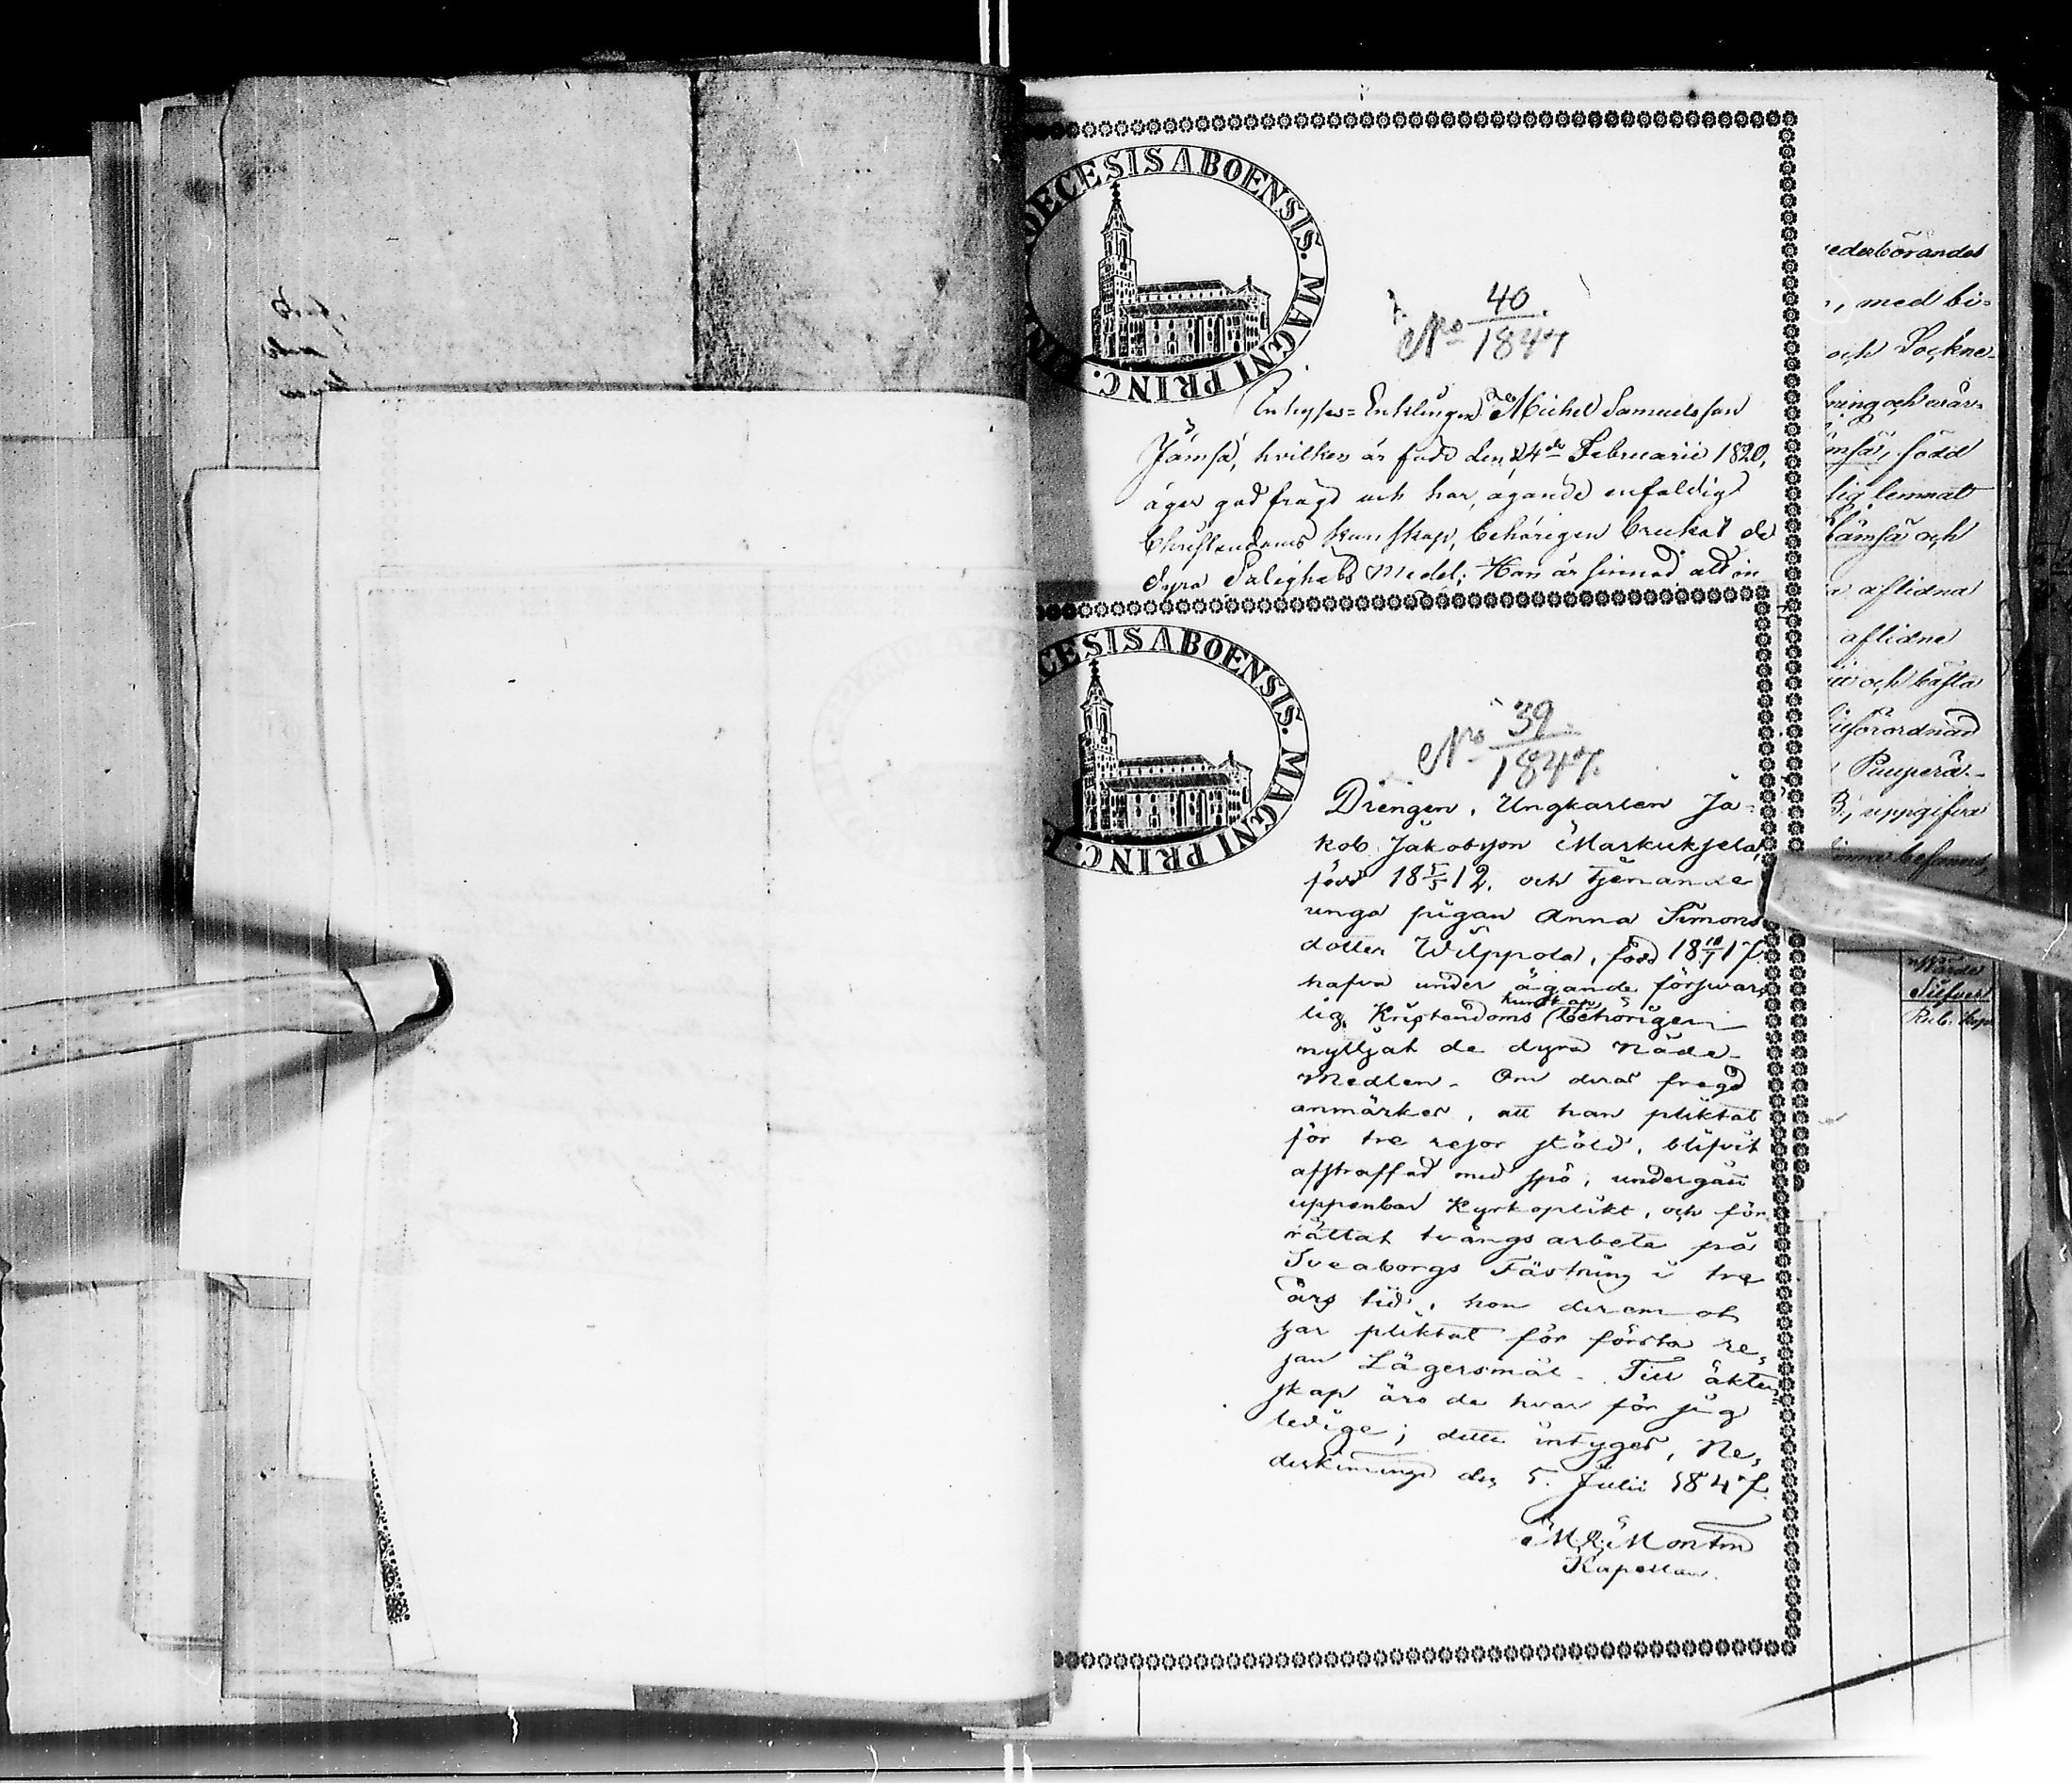 DECESIS ABOENSIS. MAGNI PRINC.
No 40/1847
Inhyses-Enklingen Michel Samuelsson
Jämsä, hvilken är född den 24de Februarii 1820,
äger god frägd och har, ägande enfaldig
Christendoms kunskap, behörigen brukat de
dyra Salighets Medel; Han är sinnad att in
CESIS ABOENSIS. MAGNI PRINC.
No 39/1847.
Drengen, Ungkarlen Ja-
kob Jakobsson Markukjela,
född 18 5/5 12. och tjenande
unga pigan Anna Simons
dotter Wilppola, född 18 10/7 17.
hafva under ägande försvar,
lig Kristendoms kunskap behörigen
nyttjat de dyra Nåde-
Medlen. Om deras fregd
anmärkes, att han pliktat
för tre resor stöld, blifvit
afstraffad med spö, undergått
uppenbar Kyrkoplikt, och för
rättat tvångsarbete på
Sveaborgs Fästning i tre
års tid, hon deremot
har pliktat för första re,
san Lägersmål. Till äkten,
skap äro de hvar för sig
ledige; detta intyger, Ne,
derkimingi den 5. Julii 1847.
Kapellan.
vederbörandes
, med bi-
och Sockne-
Jämsä, född
lig lemnat
Jämsä och
aflidna
aflidne
och bästa
förordnad
B, uppgifva
Wärde
Silfver
Rub. kop